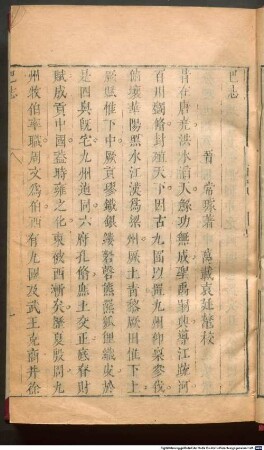 巴志
晉 常璩著 萬載袁廷鰲校
昔在唐堯洪水滔天鯀功無成聖禹嗣興導江疏河
百川蠲脩封殖天下因古九囿以置九州仰稟參伐
俯壤華陽黑水江漢爲梁州厥土青黎厥田惟下上
厥賦惟下中厥貢璆鐵銀鏤砮磬熊羆狐貍織皮於
是四奧既宅九州攸同六府孔脩庶土交正底眘財
賦成貢中國蓋時雍之化東被西漸矣歷夏殷周九
州牧伯率職周文爲伯西有九國及武王克商并徐
巴志 一